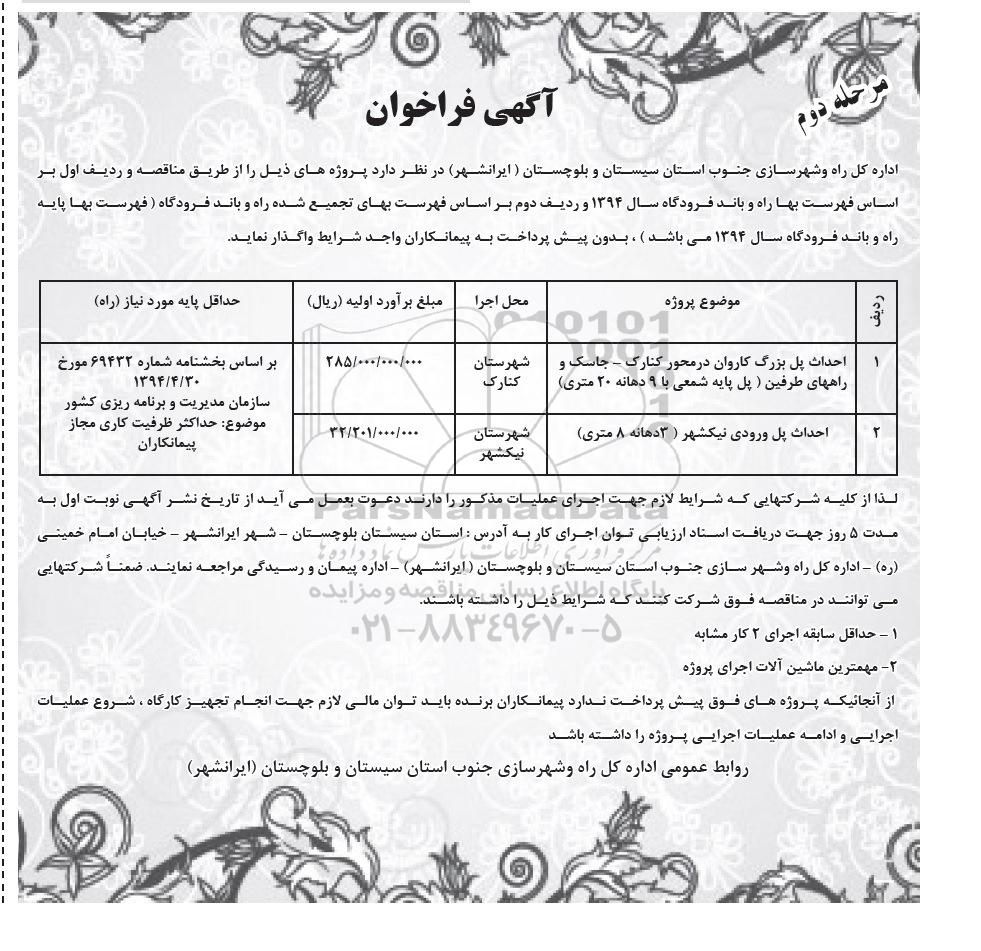 مرحله دوم
آگهی فراخوان
اداره کل راه وشهرسازی جنوب استان سیستان و بلوچستان ( ایرانشهر) در نظر دارد پروژه های ذیل را از طریق مناقصه و ردیف اول بر
اساس فهرست بها راه و باند فرودگاه سال ۱۳۹۴ و ردیف دوم بر اساس فهرست بهای تجمیع شده راه و باند فرودگاه ( فهرست بها پایه
راه و باند فرودگاه سال ۱۳۹۴ می باشد ) ، بدون پیش پرداخت به پیمانکاران واجد شرایط واگذار نماید.
ردیف
موضوع پروژه
محل اجرا
مبلغ برآورد اولیه (ریال)
حداقل پایه مورد نیاز (راه)
۱
احداث پل بزرگ کاروان درمحور کنارک – جاسک و
راههای طرفین ( پل پایه شمعی با ۹ دهانه ۲۰ متری)
شهرستان
کنارک
۲۸۵/۰۰۰/۰۰۰/۰۰۰
بر اساس بخشنامه شماره ۶۹۴۳۲ مورخ
۱۳۹۴/۴/۳۰
سازمان مدیریت و برنامه ریزی کشور
موضوع: حداکثر ظرفیت کاری مجاز
پیمانکاران
۲
احداث پل ورودی نیکشهر ( ۳دهانه ۸ متری)
شهرستان
نیکشهر
۳۲/۲۰۱/۰۰۰/۰۰۰
لذا از کلیه شرکتهایی که شرایط لازم جهت اجرای عملیات مذکور را دارند دعوت بعمل می آید از تاریخ نشر آگهی نوبت اول به
مدت ۵ روز جهت دریافت اسناد ارزیابی توان اجرای کار به آدرس : استان سیستان بلوچستان – شهر ایرانشهر – خیابان امام خمینی
(ره) – اداره کل راه وشهر سازی جنوب استان سیستان و بلوچستان ( ایرانشهر) – اداره پیمان و رسیدگی مراجعه نمایند. ضمناً شرکتهایی
می توانند در مناقصه فوق شرکت کنند که شرایط ذیل را داشته باشند.
۱ – حداقل سابقه اجرای ۲ کار مشابه
۲– مهمترین ماشین آلات اجرای پروژه
از آنجائیکه پروژه های فوق پیش پرداخت ندارد پیمانکاران برنده باید توان مالی لازم جهت انجام تجهیز کارگاه ، شروع عملیات
اجرایی و ادامه عملیات اجرایی پروژه را داشته باشد
روابط عمومی اداره کل راه وشهرسازی جنوب استان سیستان و بلوچستان (ایرانشهر)
ParsNamadData
پایگاه اطلاع رسانی مناقصه و مزایده
۰۲۱–۸۸۳۴۹۶۷۰–۵